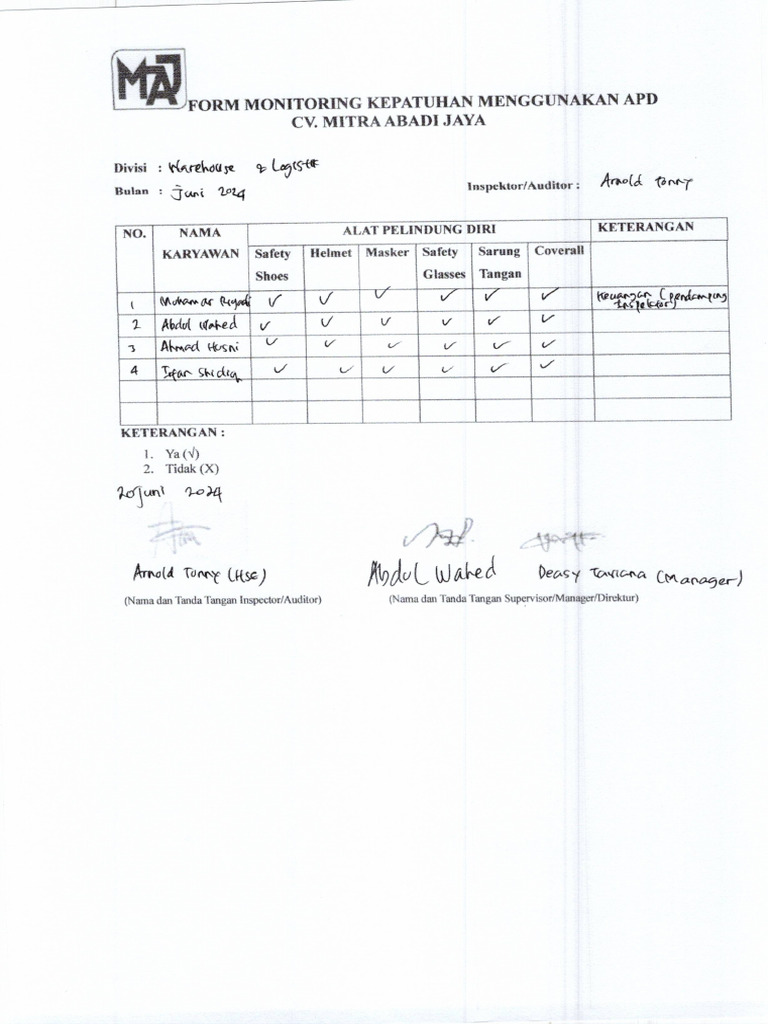 MAJ
FORM MONITORING KEPATUHAN MENGGUNAKAN APD
CV. MITRA ABADI JAYA
Divisi : Warehouse & Logistik
Bulan : Juni 2024
Inspektor/Auditor : Arnold Tonny
NO. NAMA KARYAWAN ALAT PELINDUNG DIRI KETERANGAN
Safety Shoes Helmet Masker Safety Glasses Sarung Tangan Coverall
1 Muhamar Riyadi ✓ ✓ ✓ ✓ ✓ ✓ Keuangan (pendamping Inspektor)
2 Abdul Wahed ✓ ✓ ✓ ✓ ✓ ✓
3 Ahmad Husni ✓ ✓ ✓ ✓ ✓ ✓
4 Shidiq ✓ ✓ ✓ ✓ ✓ ✓
KETERANGAN :
1. Ya (√)
2. Tidak (X)
20 Juni 2024
Arnold Tonny (HSE) Abdul Wahed Deasy Taviana (Manager)
(Nama dan Tanda Tangan Inspector/Auditor) (Nama dan Tanda Tangan Supervisor/Manager/Direktur)